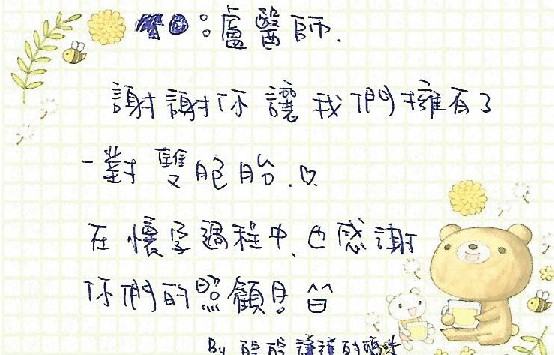 ：盧醫師.
謝謝你讓我們擁有了
一對雙胞胎.♡
在懷孕過程中,也感謝
你們的照顧
By 的媽咪